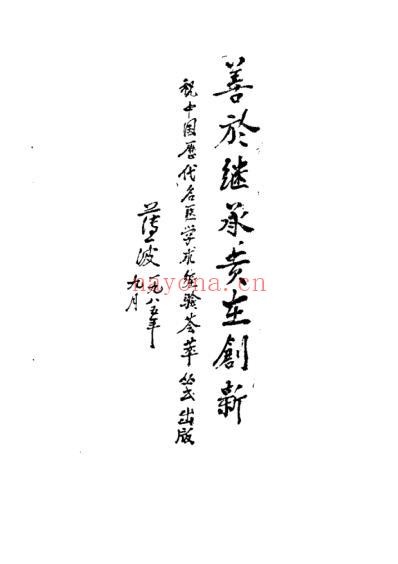 善於继承贵在創新
祝中国历代名医学术经验荟萃丛书出版
薄波 一九八五年
九月
nayona.cn